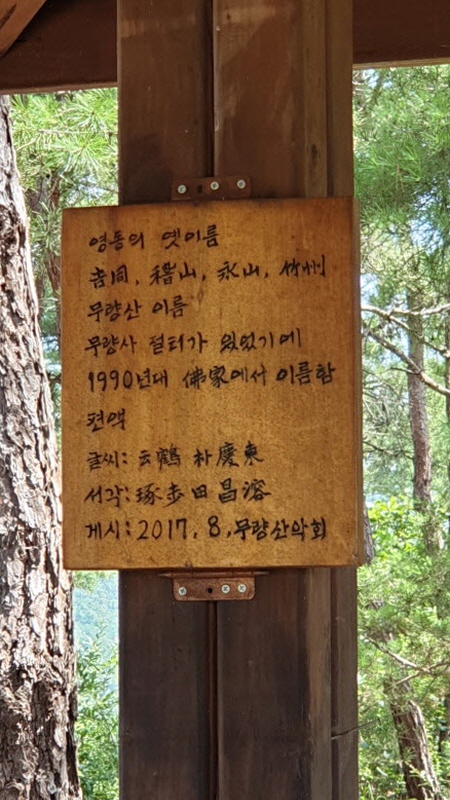 영동의 옛이름
吉同, 稽山, 永山, 竹州
무량산 이름
무량사 절터가 있었기에
1990년대 佛家에서 이름함
편액
글씨: 云鶴 朴慶東
서각: 琢步 田昌溶
게시: 2017. 8. 무량산악회